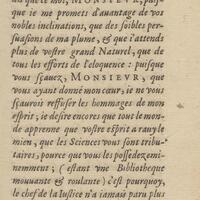 que ie me promets d'auantage de vos
nobles inclinations, que des foibles per-
suasions de ma plume, & que i'attends
plus de vostre grand Naturel, que de
tous les efforts de l'eloquence : puisque
vous sçauez, MONSIEVR, que
vous ayant donné mon cœur, ie ne vous
sçaurois reffuser les hommages de mon
esprit; ie desire encores que tout le mon-
de apprenne que vostre esprit a rauy le
mien, que les Sciences vous sont tribu-
taires, pource que vous les possedez emi-
nemment ; (estant vne Bibliotheque
mouuante & roulante) c'est pourquoy,
le chef de la Iustice n'a iamais paru plus